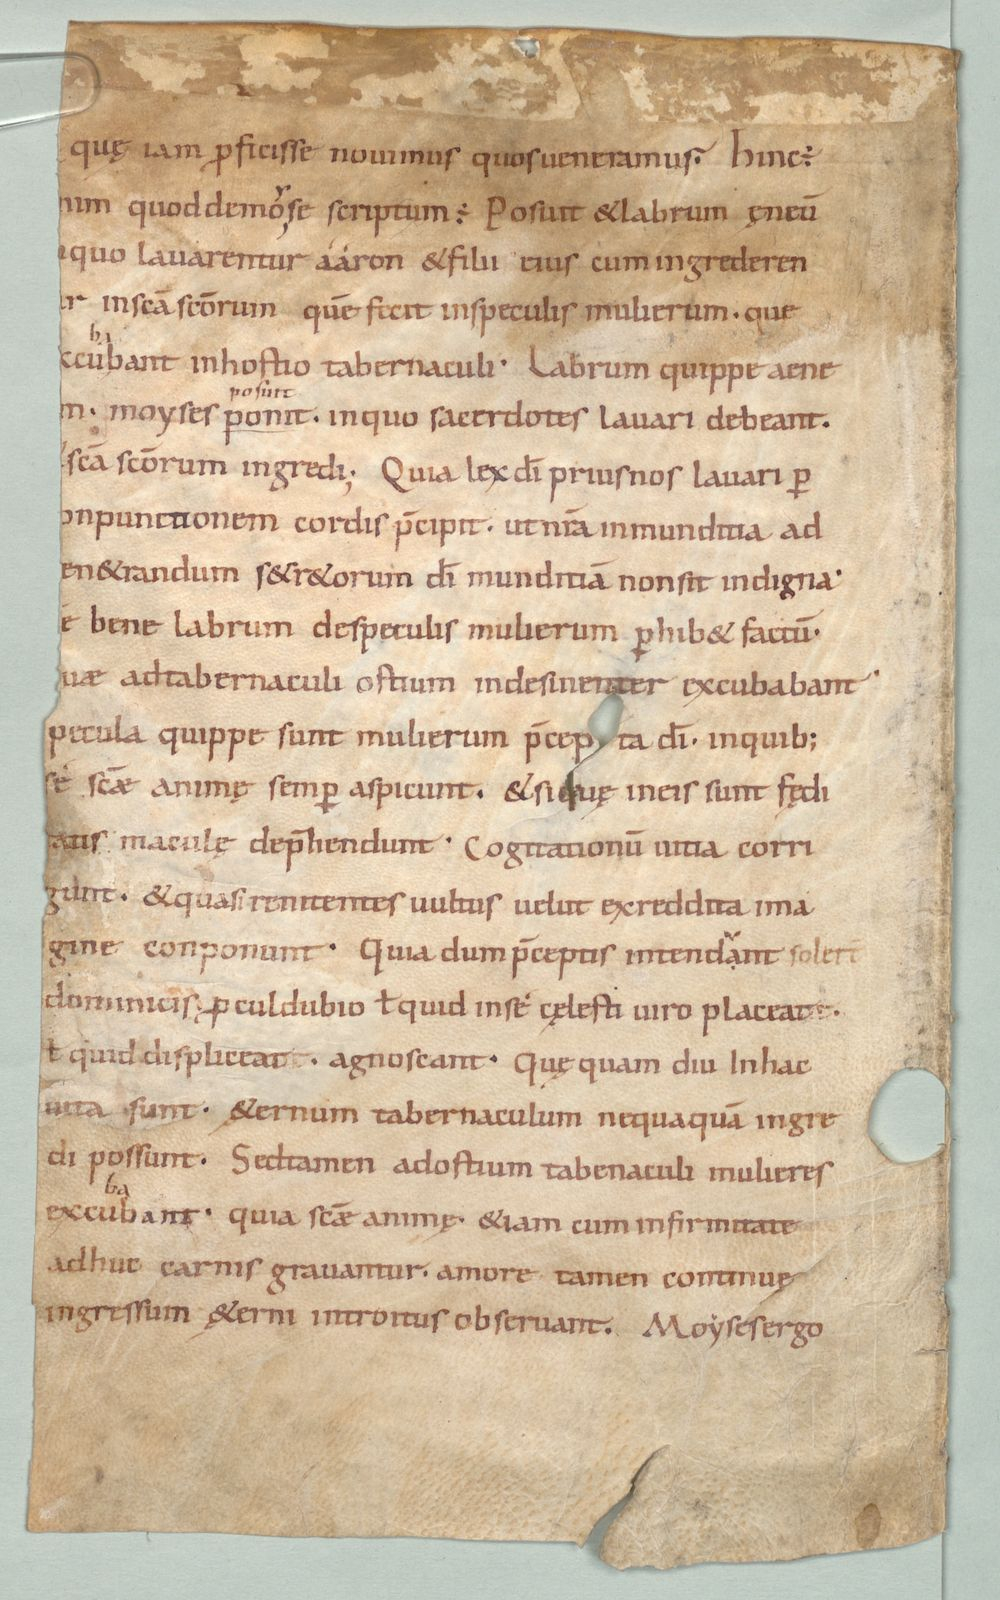 quę iam ꝓficisse nouimus quos ueneramus. hinc
nim quod de moyse scriptum; Posuit &labrum ęneū
quo lauarentur ááron &filii eius cum ingrederen
ur in scā scōrum quē fecit in speculis mulierum. que
xcubabant in hostio tabernaculi. Labrum quippe aene
m. moyses ponit posuit. in quo sacerdotes lauari debeant.
scā scōrum ingredi; Quia lex dī prius nos lauari ꝑ
onpunctionem cordis p̄cipit. ut nr̄a inmunditia ad
en&randum s&r&orum dī munditiā non sit indigna.
ē bene labrum de speculis mulierum ꝑhib& factū.
uæ ad tabernaculi ostium indesinenter excubabant
pecula quippe sunt mulierum p̄cepta dī. in quib;
sé scæ animę semꝑ aspicunt. &si quę in eis sunt fędi
tatis maculę dep̄hendunt. Cogitationū uitia corri
gunt. &quasi renitentes uultus uelut ex reddita ima
gine conponunt. Quia dum p̄ceptis intendant solert
dominicis, ꝓculdubio ł quid in sé cęlesti uiro placeat.
ł quid displiceat. agnoscant. Quę quam diu In hac
uita sunt. &ernum tabernaculum nequaquā ingre
di possunt. Sed tamen ad ostium tabenaculi mulieres
excubabant. quia scæ animę. &iam cum infirmitate
adhuc carnis grauantur. amore tamen continuę
ingressum &erni introitus obseruant. Moyses ergo